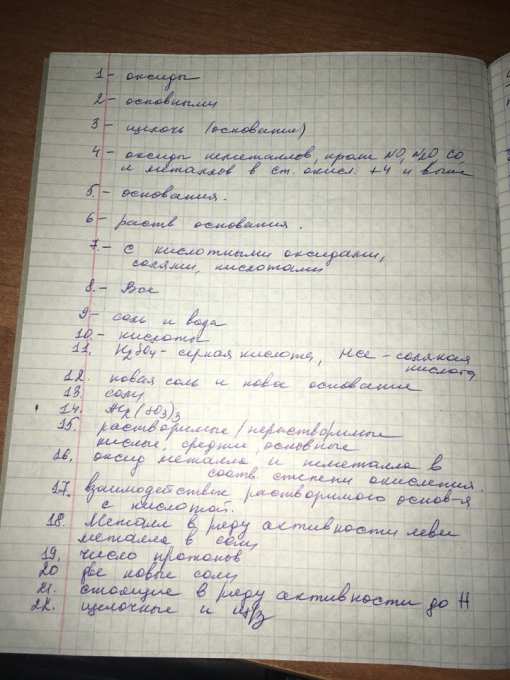 1 - оксиды
2 - основными
3 - щелочь (основание)
4 - оксиды неметаллов, кроме NO, N₂O, CO
и металлов в ст. окисл. +4 и выше
5. - основания.
6 - раств основания.
7. - с кислотными оксидами,
солями, кислотами
8. - Все
9 - соль и вода
10. - кислоты
11. H₂SO₄ - серная кислота, HCl - соляная
кислота
12. новая соль и новое основание
13. соли
14. (SO₃)₃
15. растворимые / нерастворимые
кислые, средние, основные
16. оксид металла и неметалла в
соотв. степени окисления.
17. взаимодействие растворимого основ-я
с кислотой.
18. Металл в ряду активности левее
металла в соли
19. число протонов
20 две новые соли
21. стоящие в ряду активности до H
22. щелочные и щ/з